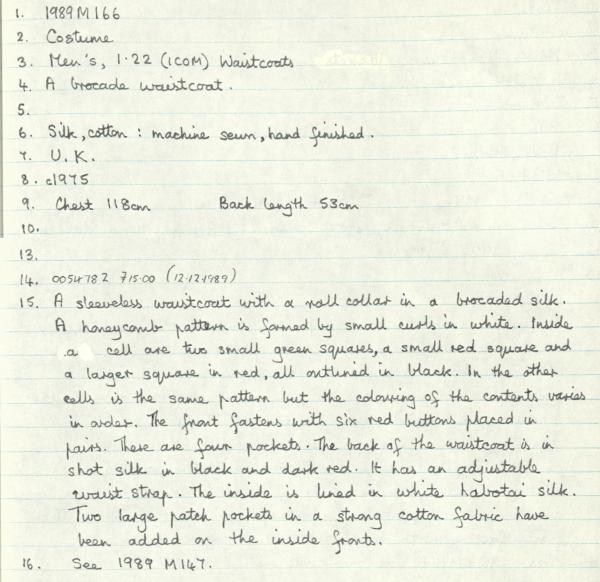 1. 1989 M 166
2. Costume
3. Men's, 1.22 (ICOM) Waistcoats
4. A brocade waistcoat.
5.
6. Silk, cotton : machine sewn, hand finished.
7. U.K.
8. c1975
9. Chest 118cm Back length 53cm
10.
13.
14. 0054782 715.00 (12.12.1989)
15. A sleeveless waistcoat with a roll collar in a brocaded silk.
A honeycomb pattern is formed by small curls in white. Inside
a cell are two small green squares, a small red square and
a larger square in red, all outlined in black. In the other
cells is the same pattern but the colouring of the contents varies
in order. The front fastens with six red buttons placed in
pairs. There are four pockets. The back of the waistcoat is in
shot silk in black and dark red. It has an adjustable
waist strap. The inside is lined in white habotai silk.
Two large patch pockets in a strong cotton fabric have
been added on the inside fronts.
16. See 1989 M147.